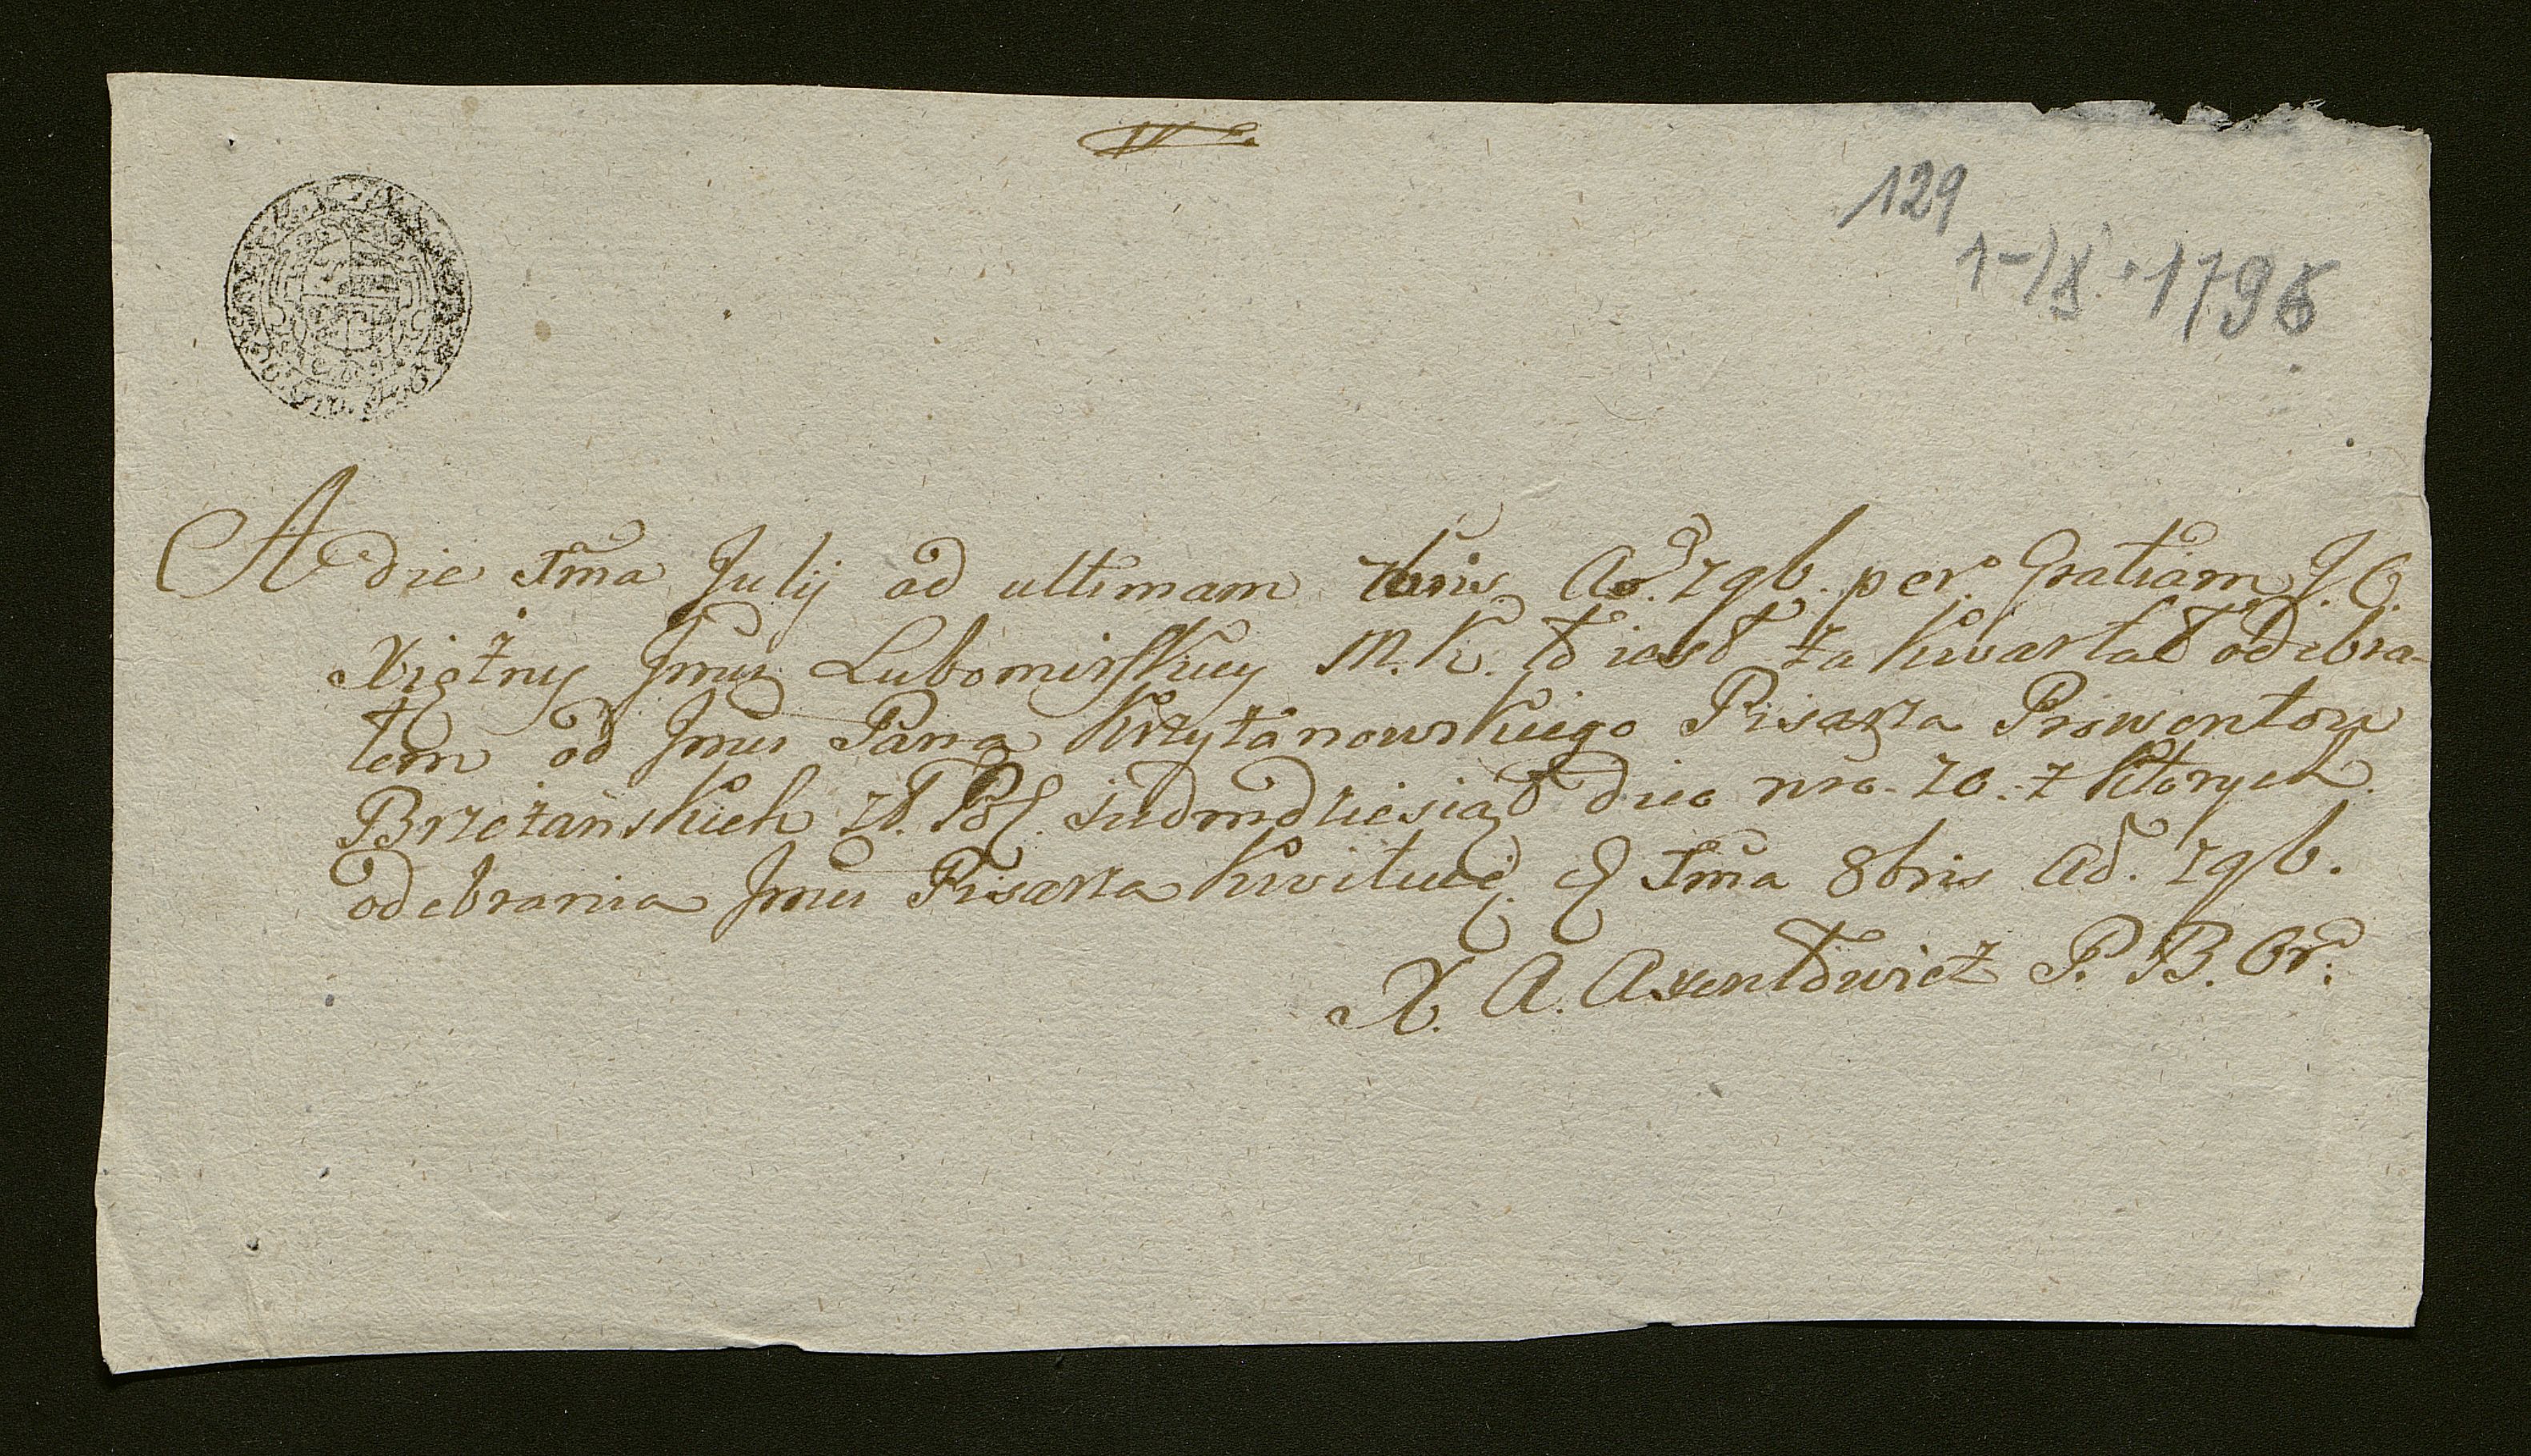 129
1-X.1796
A die 1ma Julij ad ultimam 7bris Ao. 796. per Gratiam J. O.
Xiężny Jmci Lubomirskiey M. K. to iest za kwartał odebra-
łem od Jmci Pana Krzyżanowskiego Pisarza Prowentow
Brzeżańskich zł. Pol. siedmdziesiąt dico nro. 70. z ktorych
odebrania Jmci Pisarza kwituię. 1ma 8bris Ao. 796.
X. A. Axentowicz P. B. Or.